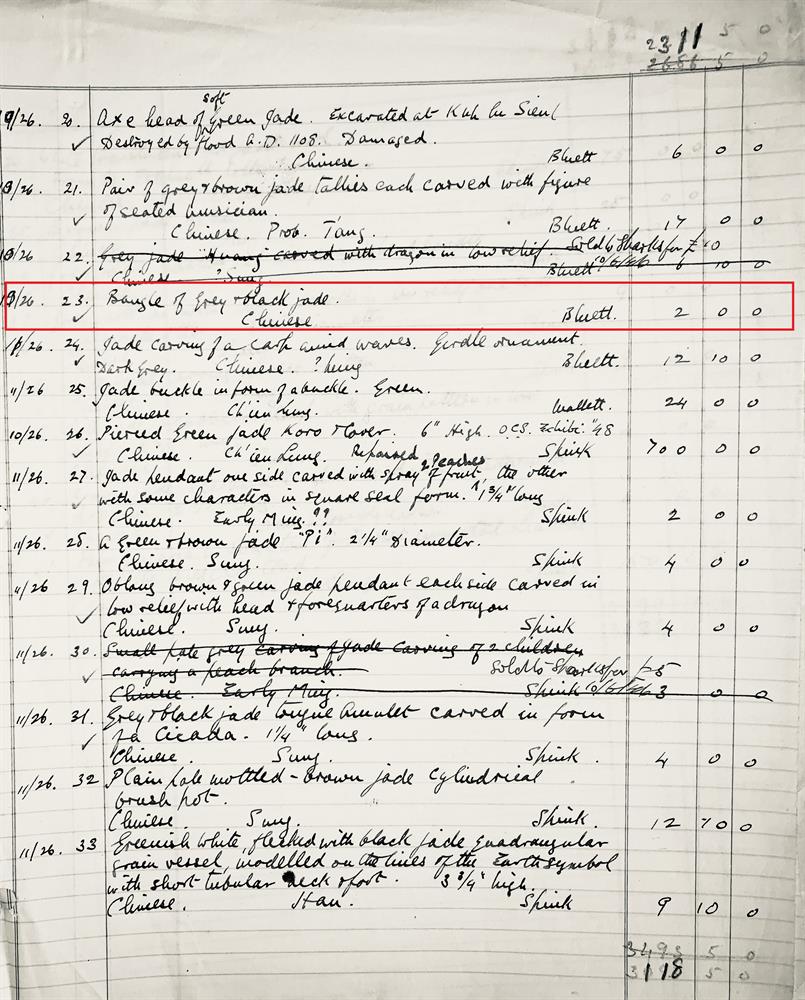 2311 5 0
2686 5 0
9/26. 20. Axe head of soft Green Jade. Excavated at Kuh lu Sien
Destroyed by flood A.D. 1108. Damaged.
Chinese. Bluett 6 0 0
10/26. 21. Pair of grey & brown jade tallies each carved with figure
of seated musician.
Chinese. Prob. T'ang. Bluett. 17 0 0
10/26 22. Grey jade "Huang" carved with dragon in low relief. Sold to Sparks for £10
Chinese ? Sung Bluett 10/6/46 6 10 0
10/26. 23. Bangle of Grey & black jade.
Chinese Bluett. 2 0 0
24. Jade carving of a carp amid waves. Girdle ornament.
Dark Grey. Chinese. ? Ming Bluett. 12 10 0
11/26 25. Jade buckle in form of a buckle. Green.
Chinese. Ch'ien Lung. Mallett. 24 0 0
10/26. 26. Pierced Green jade Koro & Cover. 6" High. O.C.S. Exhibi. '48
Chinese. Ch'ien Lung. Spink 700 0 0
11/26. 27. Jade pendant one side carved with spray of fruit, 2 Peaches the other
with some characters in square seal form. 1 3/4" long
Chinese. Early Ming ?? Spink 2 0 0
11/26. 28. A Green & brown jade "Pi". 2 1/4" Diameter.
Chinese. Sung. Spink 4 0 0
11/26 29. Oblong brown & green jade pendant each side carved in
low relief with head & forequarters of a dragon
Chinese. Sung. Spink 4 0 0
11/26. 30. Small pale grey carving of jade carving of 2 children
carrying a peach branch. Sold to Sparks for £5
Chinese. Early Ming. Spink 10/6/46 3 0 0
11/26. 31. Grey & black jade tongue Amulet carved in form
of a Cicada. 1 1/4" long.
Chinese. Sung. Spink. 4 0 0
11/26. 32 Plain pale mottled-brown jade cylindrical
brush pot.
Chinese. Sung. Spink. 12 10 0
11/26. 33 Greenish white, flecked with black jade quadrangular
grain vessel, modelled on the lines of the Earth symbol
with short tubular neck & foot. 3 3/4" high.
Chinese. Han. Spink 9 10 0
3493 5 0
118 5 0